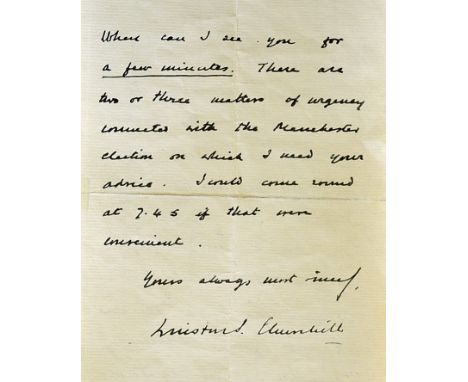 When can I see you for
a few minutes. There are
two or three matters of urgency
connected with the Manchester
election on which I need your
advice. I could come round
at 7.45 if that were
convenient.
Yours always most
Winston S. Churchill